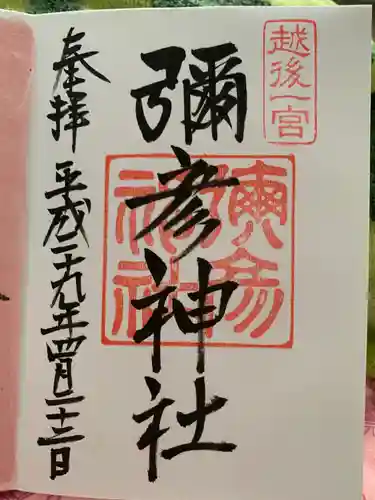 越後一宮
彌彦神社
奉拝 平成二十九年四月二十二日